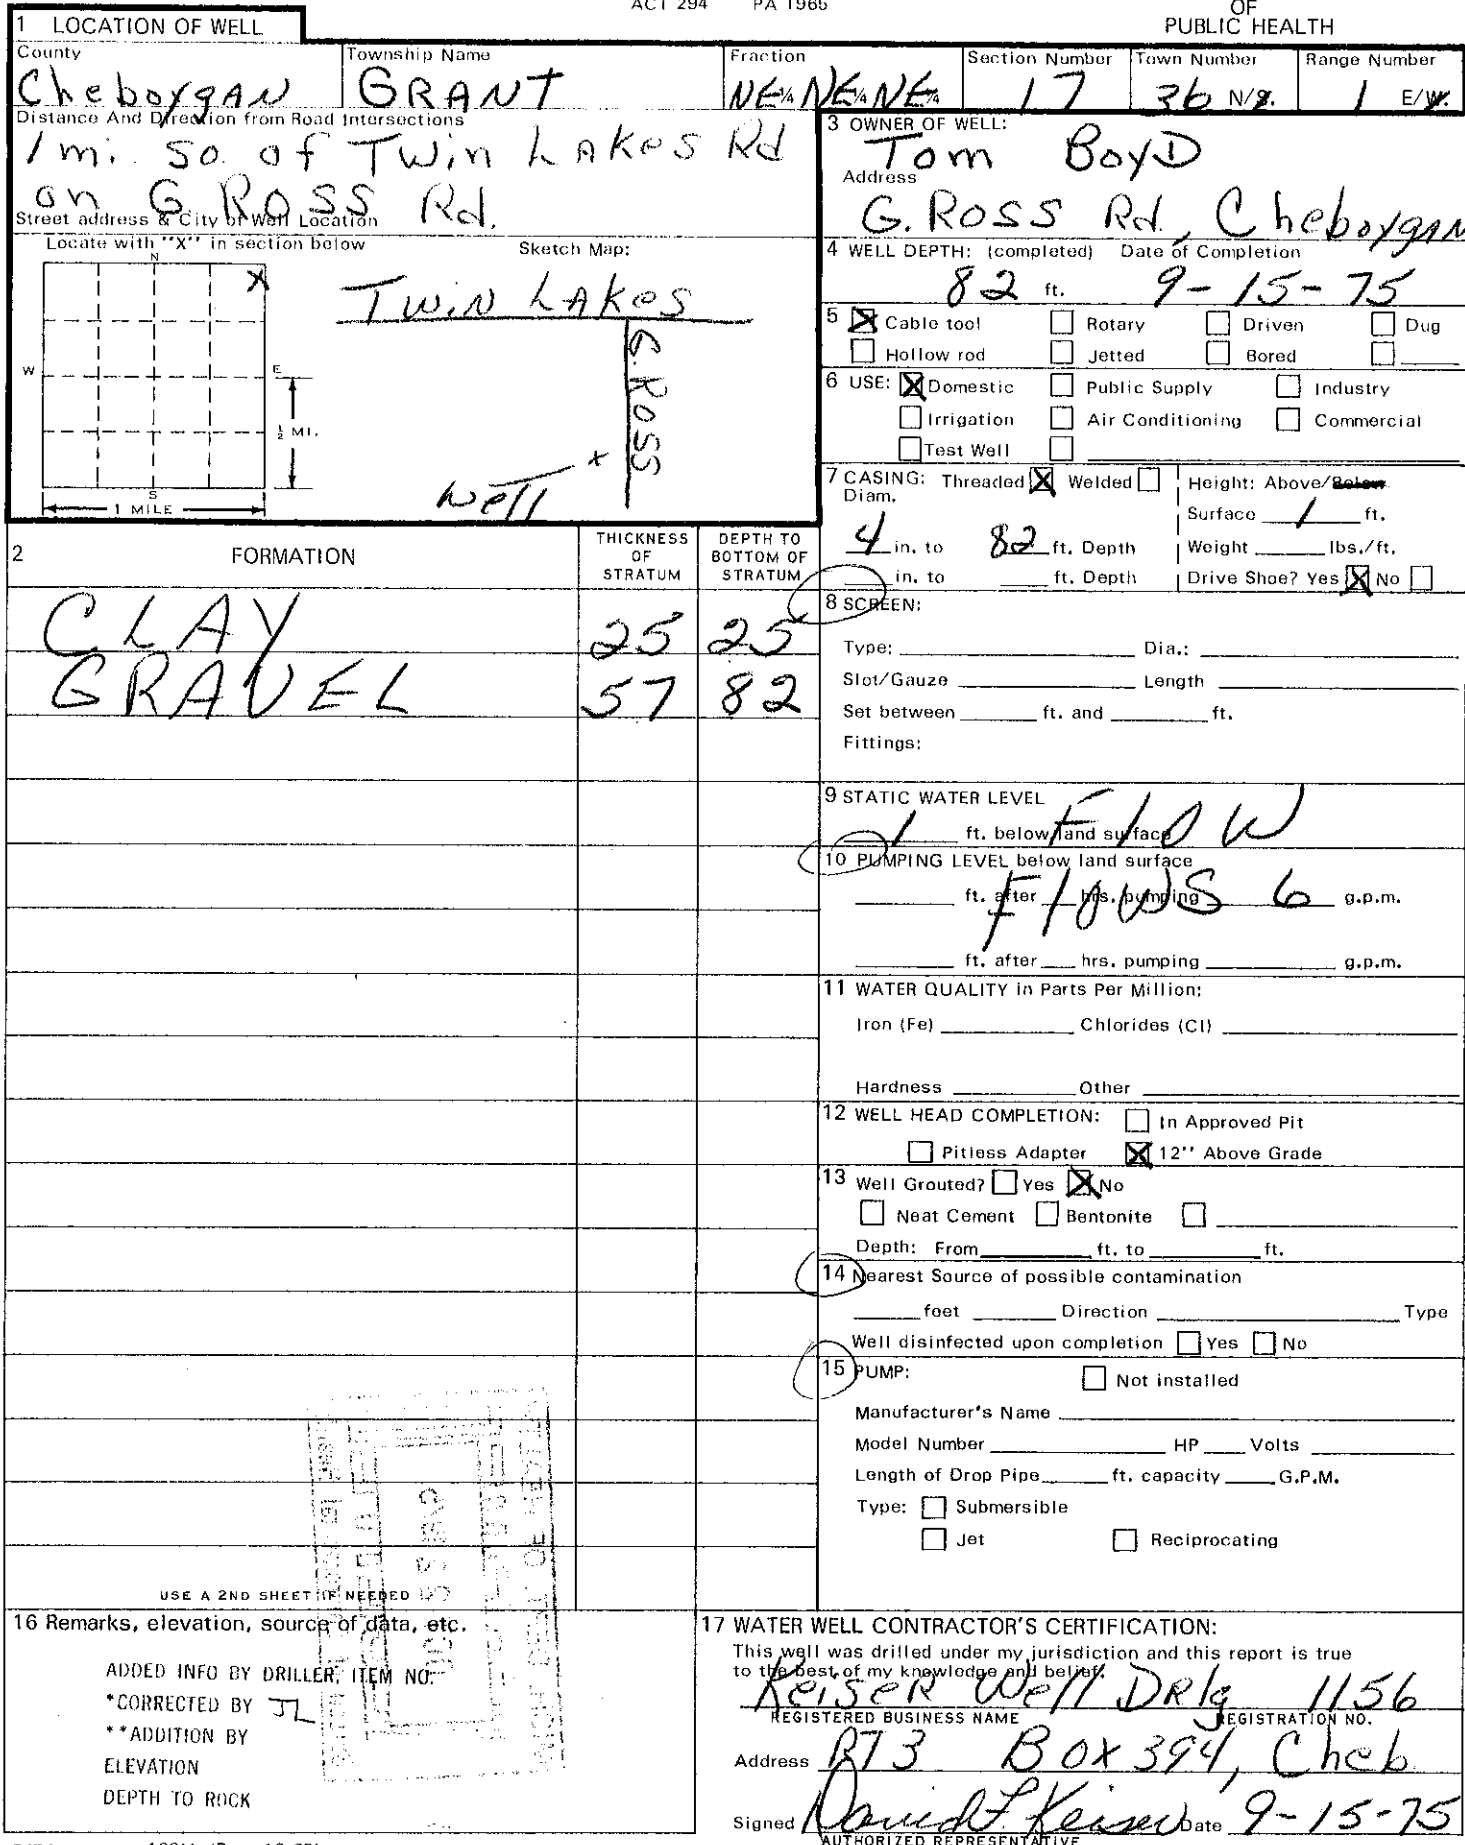 ACT 294 PA 1965
OF
PUBLIC HEALTH
1 LOCATION OF WELL
County
Cheboygan
Township Name
GRANT
Fraction
NE¼ NE¼ NE¼
Section Number
17
Town Number
36 N/S.
Range Number
1 E/W.
Distance And Direction from Road Intersections
1 mi. So. of Twin Lakes Rd
on G. Ross Rd.
Street address & City of Well Location
Locate with "X" in section below
Sketch Map:
N
X
W
E
½ MI.
S
1 MILE
Twin Lakes
G. ROSS
x
Well
2 FORMATION
THICKNESS OF STRATUM
DEPTH TO BOTTOM OF STRATUM
CLAY 25 25
GRAVEL 57 82
USE A 2ND SHEET IF NEEDED
3 OWNER OF WELL:
Tom Boyd
Address
G. Ross Rd., Cheboygan
4 WELL DEPTH: (completed) Date of Completion
82 ft. 9-15-75
5 X Cable tool Rotary Driven Dug
Hollow rod Jetted Bored
6 USE: X Domestic Public Supply Industry
Irrigation Air Conditioning Commercial
Test Well
7 CASING: Threaded X Welded
Diam.
4 in. to 82 ft. Depth
in. to ft. Depth
Height: Above/Below
Surface 1 ft.
Weight lbs./ft.
Drive Shoe? Yes X No
8 SCREEN:
Type: Dia.:
Slot/Gauze Length
Set between ft. and ft.
Fittings:
9 STATIC WATER LEVEL
1 ft. below land surface Flow
10 PUMPING LEVEL below land surface
ft. after hrs. pumping Flows 6 g.p.m.
ft. after hrs. pumping g.p.m.
11 WATER QUALITY in Parts Per Million:
Iron (Fe) Chlorides (Cl)
Hardness Other
12 WELL HEAD COMPLETION: In Approved Pit
Pitless Adapter X 12" Above Grade
13 Well Grouted? Yes X No
Neat Cement Bentonite
Depth: From ft. to ft.
14 Nearest Source of possible contamination
feet Direction Type
Well disinfected upon completion Yes No
15 PUMP: Not installed
Manufacturer's Name
Model Number HP Volts
Length of Drop Pipe ft. capacity G.P.M.
Type: Submersible
Jet Reciprocating
16 Remarks, elevation, source of data, etc.
ADDED INFO BY DRILLER, ITEM NO.
*CORRECTED BY JL
**ADDITION BY
ELEVATION
DEPTH TO ROCK
17 WATER WELL CONTRACTOR'S CERTIFICATION:
This well was drilled under my jurisdiction and this report is true
to the best of my knowledge and belief.
Keiser Well Drlg 1156
REGISTERED BUSINESS NAME REGISTRATION NO.
Address RT 3 Box 394, Cheb.
Signed David F. Keiser Date 9-15-75
AUTHORIZED REPRESENTATIVE